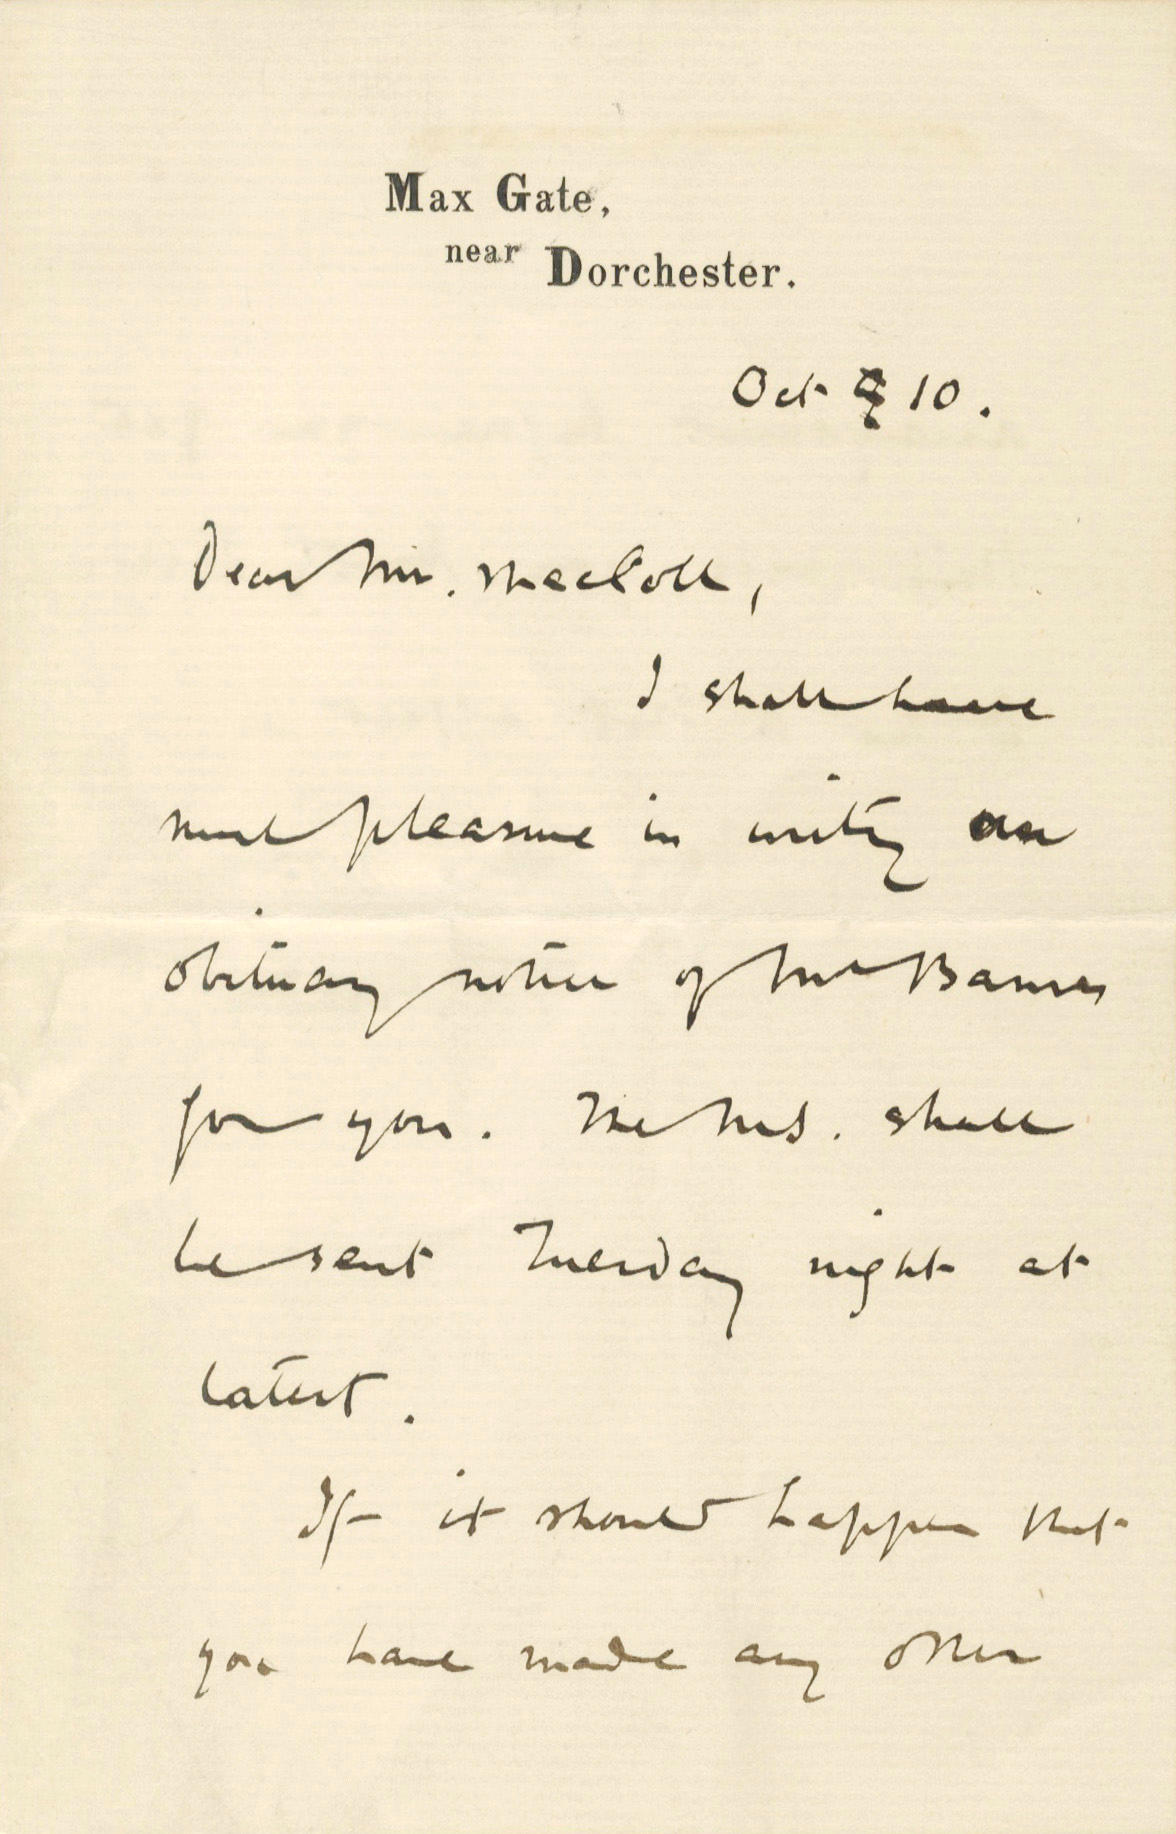 Max Gate,
near Dorchester.
Oct 10.
Dear Mr. MacColl,
I shall have
much pleasure in writing an
obituary notice of Mr Barnes
for you. The MS. shall
be sent Tuesday night at
latest.
If it should happen that
you have made any other